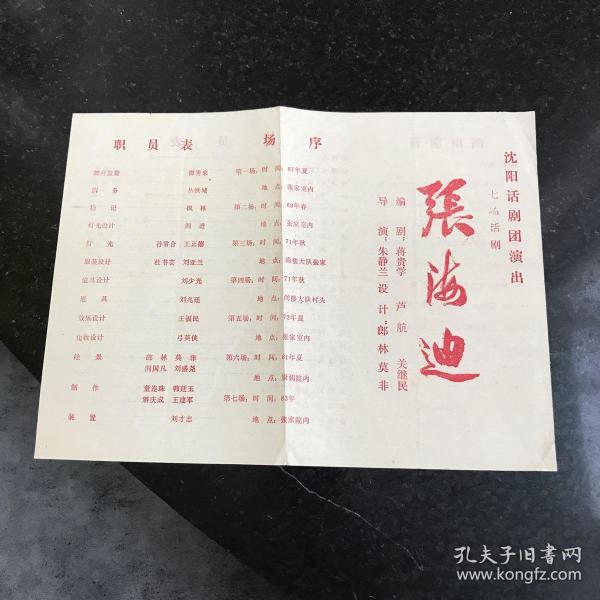 沈阳话剧团演出
七场话剧
張海迪
编剧：蒋贵学 卢航 关继民
导演：朱静兰 设计：郎林 莫非
场序
第一场：时间：67年夏
地点：张家室内
第二场：时间：69年春
地点：张家室内
第三场：时间：71年秋
地点：尚楼大队张家
第四场：时间：71年秋
地点：尚楼大队村头
第五场：时间：73年夏
地点：张家室内
第六场：时间：81年夏
地点：康复院内
第七场：时间：83年
地点：张家院内
职员表
舞台监督 谭芳来
剧务 丛铁城
场记 枫林
灯光设计 闫道
灯光 孙常合 王正德
服装设计 杜书芸 刘亚兰
道具设计 刘少光
道具 刘兆廷
效果设计 王福民
化妆设计 弓英侠
绘景 郎林 莫非
国凡 刘盛尧
制作 董连珠 韩廷玉
解庆成 王建军
装置 刘才志
孔夫子旧书网
www.kongfz.com